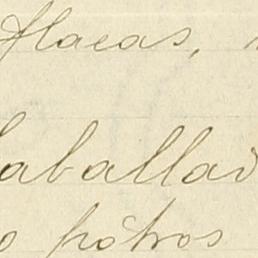 flacas,
caballad
potros